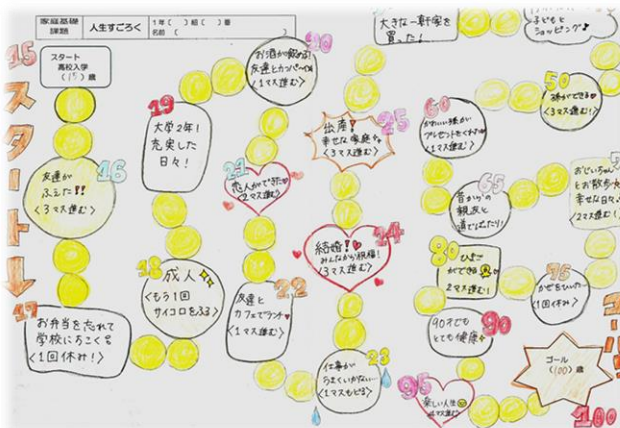 家庭基礎
課題
人生すごろく
1年( )組( )番
名前( )
15
スタート
高校入学
(15)歳
スタート
16
友達が
ふえた!!
<3マス進む>
17
お弁当を忘れて
学校にちこく
<1回休み!>
18
成人
<もう1回
サイコロをふる>
19
大学2年!
充実した
日々!
20
お酒が飲める!
友達とカンパーイ
<1マス進む>
21
恋人ができた
<2マス進む>
22
友達と
カフェでランチ
<1マス進む>
23
仕事が
うまくいかない…
<1マスもどる>
24
結婚!
みんなから祝福!
<3マス進む>
25
出産!
幸せな家庭
<3マス進む>
大きな一軒家を
買った!
子どもと
ショッピング♪
50
孫ができる
<3マス進む!>
60
かわいい孫から
プレゼント
<1マス進む>
65
昔からの
親友と
道でばったり!
おじいちゃん
とお散歩
幸せな日々
<2マス進む!>
75
かぜをひいた…
<1回休み>
80
ひまごが
できる
2マス進む!
90
90才でも
とても健康
95
楽しい人生
ゴール
(100)歳
100